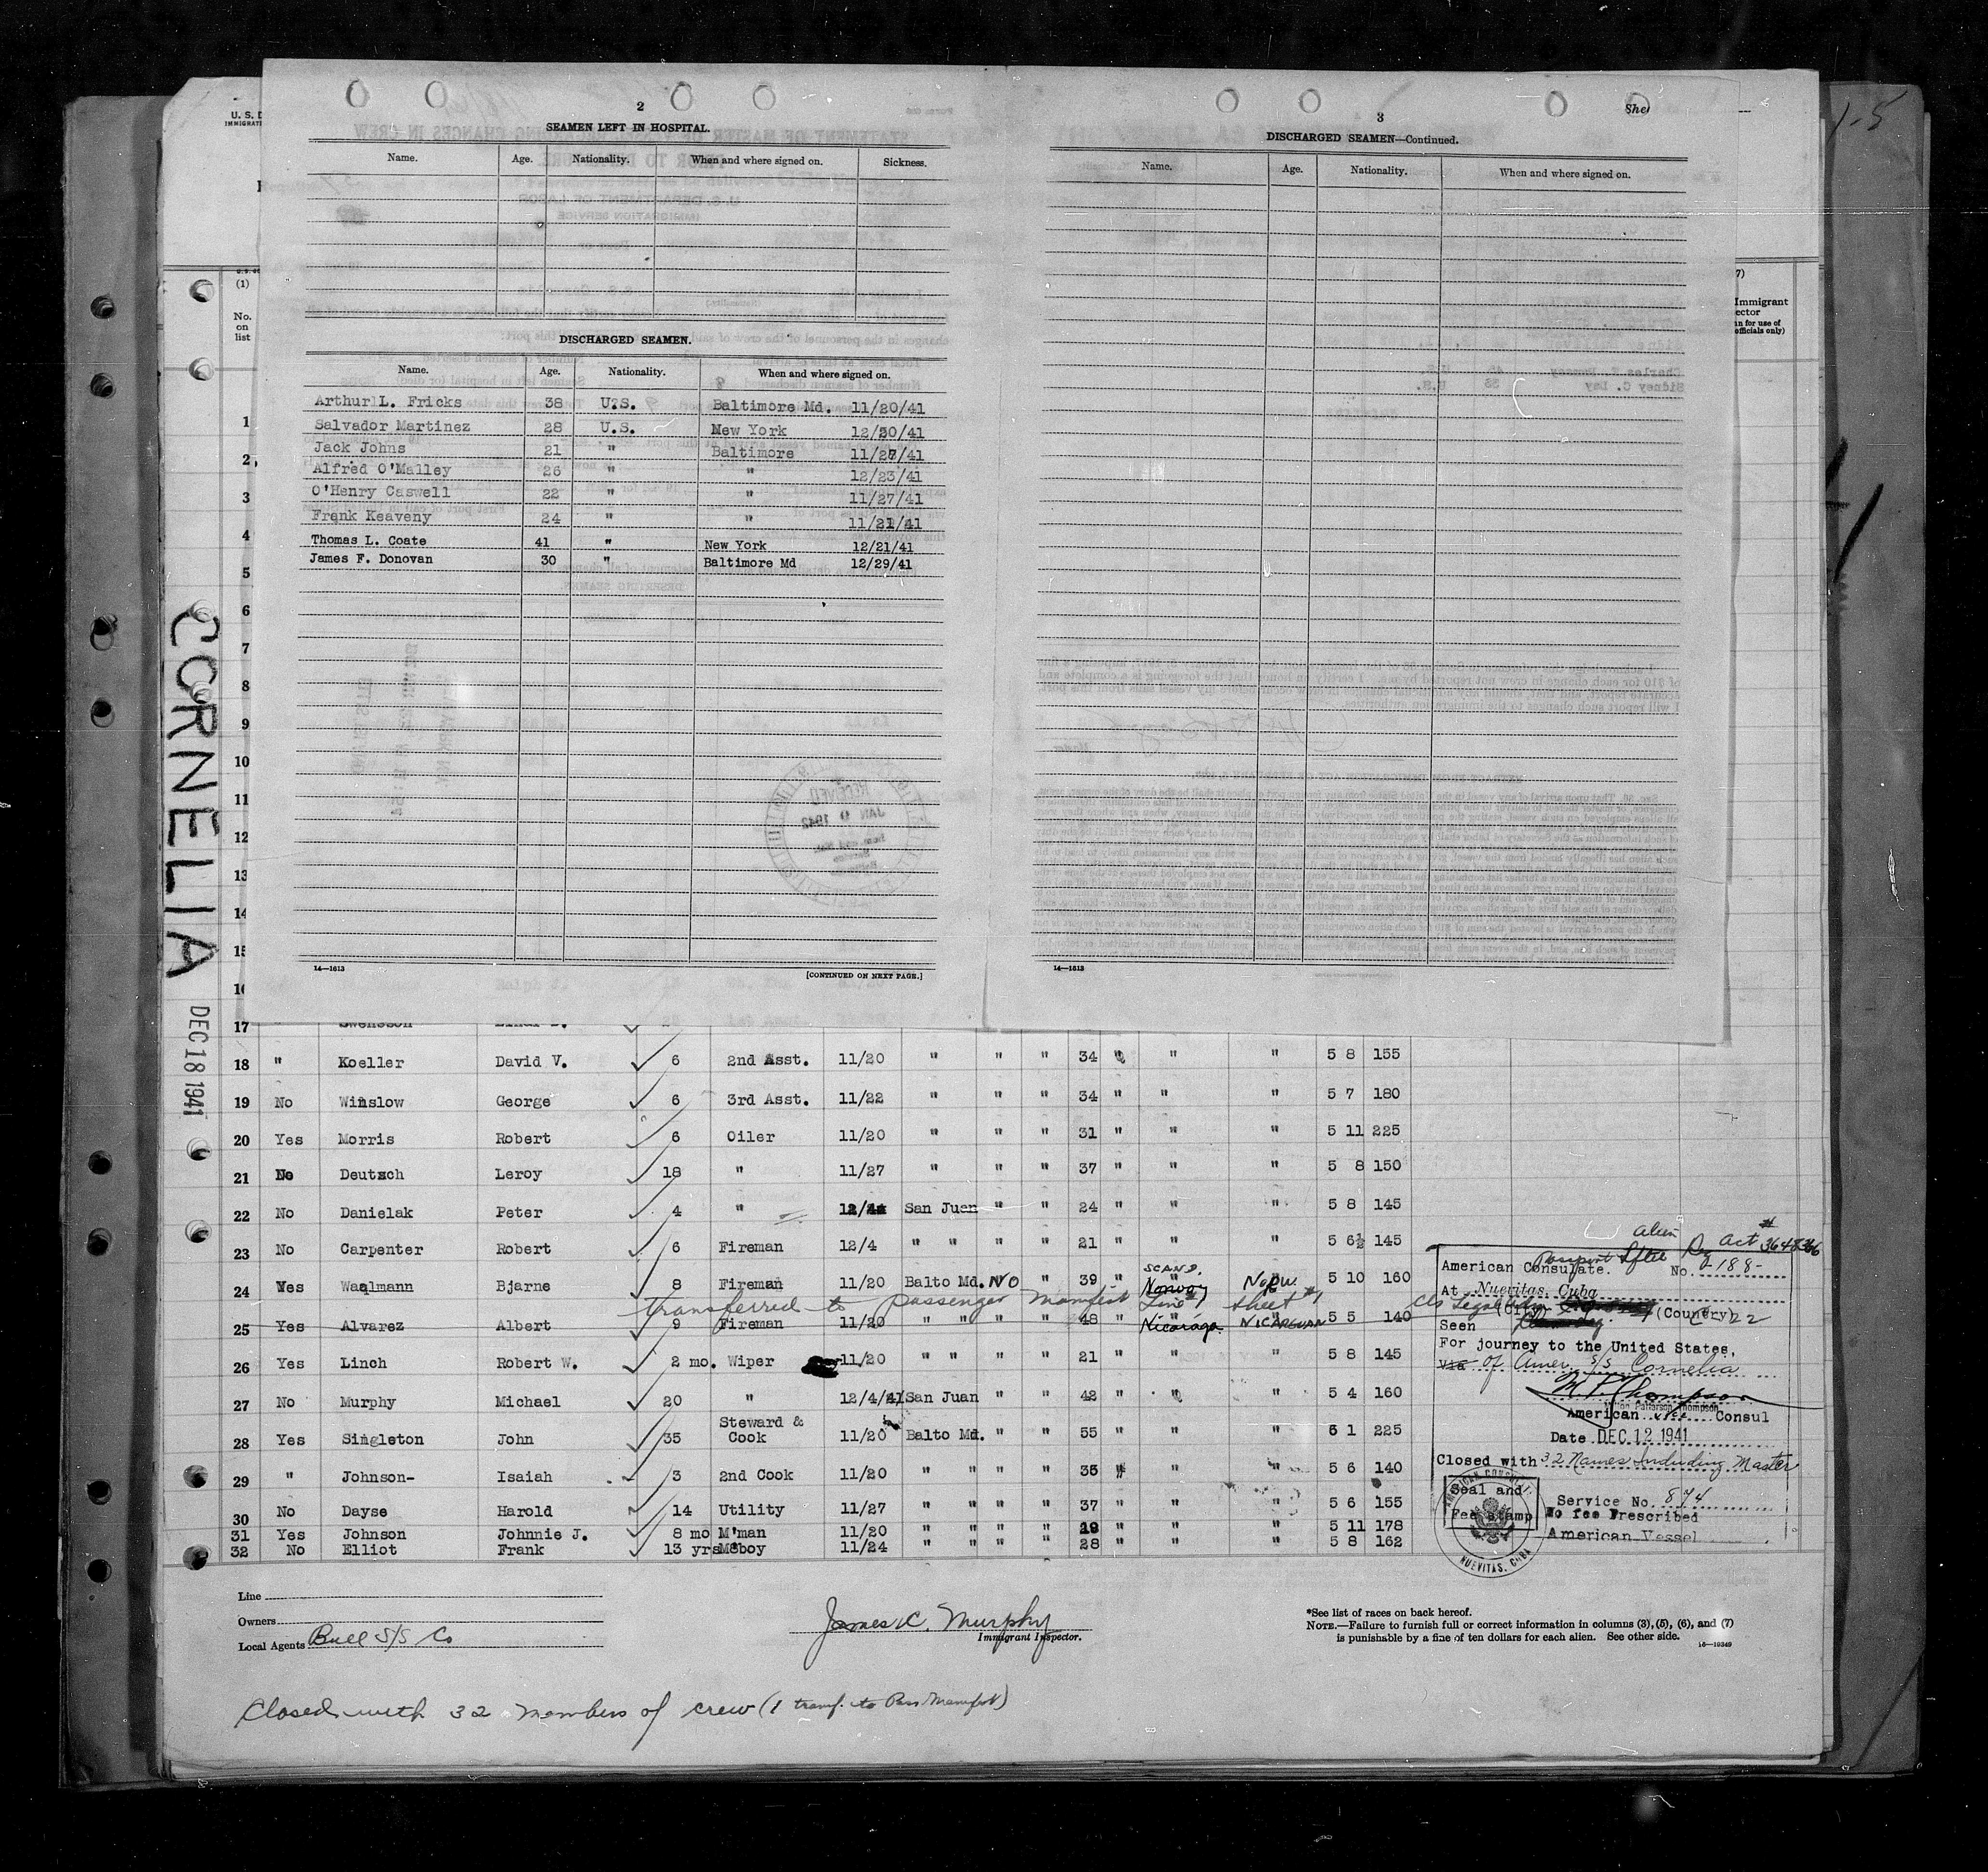 2
SEAMEN LEFT IN HOSPITAL.
Name. Age. Nationality. When and where signed on. Sickness.
DISCHARGED SEAMEN.
Name. Age. Nationality. When and where signed on.
Arthur L. Fricks 38 U.S. Baltimore Md. 11/20/41
Salvador Martinez 28 U.S. New York 12/20/41
Jack Johns 21 " Baltimore 11/27/41
Alfred O'Malley 26 " " 12/23/41
O'Henry Caswell 22 " " 11/27/41
Frank Keaveny 24 " " 11/21/41
Thomas L. Coate 41 " New York 12/21/41
James F. Donovan 30 " Baltimore Md 12/29/41
14—1613
[CONTINUED ON NEXT PAGE.]
3
DISCHARGED SEAMEN—Continued.
Name. Age. Nationality. When and where signed on.
14—1613
She
1-5
U. S. D
IMMIGRAT
(1)
No.
on
list
7)
Immigrant
ector
n for use of
officials only)
1
2
3
4
5
6
7
8
9
10
11
12
13
14
15
16
17 Swensson
18 " Koeller David V. 6 2nd Asst. 11/20 " " " 34 " " " 5 8 155
19 No Winslow George 6 3rd Asst. 11/22 " " " 34 " " " 5 7 180
20 Yes Morris Robert 6 Oiler 11/20 " " " 31 " " " 5 11 225
21 No Deutsch Leroy 18 " 11/27 " " " 37 " " " 5 8 150
22 No Danielak Peter 4 " San Juan " " 24 " " " 5 8 145
23 No Carpenter Robert 6 Fireman 12/4 " " " " 21 " " " 5 6½ 145
24 Yes Waalmann Bjarne 8 Fireman 11/20 Balto Md. NO " 39 " SCAND. Norway Norw. 5 10 160
transferred to passenger manifest Line #1 sheet #1
25 Yes Alvarez Albert 9 Fireman 11/20 " " " " 48 " Nicaragua NICARGUAN 5 5 140
26 Yes Linch Robert W. 2 mo. Wiper 11/20 " " " " 21 " " " 5 8 145
27 No Murphy Michael 20 " 12/4/41 San Juan " " 42 " " " 5 4 160
28 Yes Singleton John 35 Steward & Cook 11/20 Balto Md. " " 55 " " " 5 1 225
29 " Johnson- Isaiah 3 2nd Cook 11/20 " " " " 35 " " " 5 6 140
30 No Dayse Harold 14 Utility 11/27 " " " " 37 " " " 5 6 155
31 Yes Johnson Johnnie J. 8 mo M'man 11/20 " " " " 19 " " " 5 11 178
32 No Elliot Frank 13 yrs Msboy 11/24 " " " " 28 " " " 5 8 162
CORNELIA
DEC 18 1941
Alien Reg Act # 3648366
American Consulate. No. 188-
At Nuevitas, Cuba
(City) (Country)
Seen
For journey to the United States,
Via of Amer. S/S Cornelia
M. P. Thompson
Milton Patterson Thompson
American Vice Consul
Date DEC 12 1941
Closed with 32 Names Including Master
Seal and
Fee stamp
Service No. 874
No fee Prescribed
American Vessel
AMERICAN CONSUL
NUEVITAS, CUBA
Line
Owners
Local Agents Bull S/S Co
James K. Murphy
Immigrant Inspector.
*See list of races on back hereof.
NOTE.—Failure to furnish full or correct information in columns (3), (5), (6), and (7)
is punishable by a fine of ten dollars for each alien. See other side.
16—19349
Closed with 32 members of crew (1 transf. to Pass Manifest)